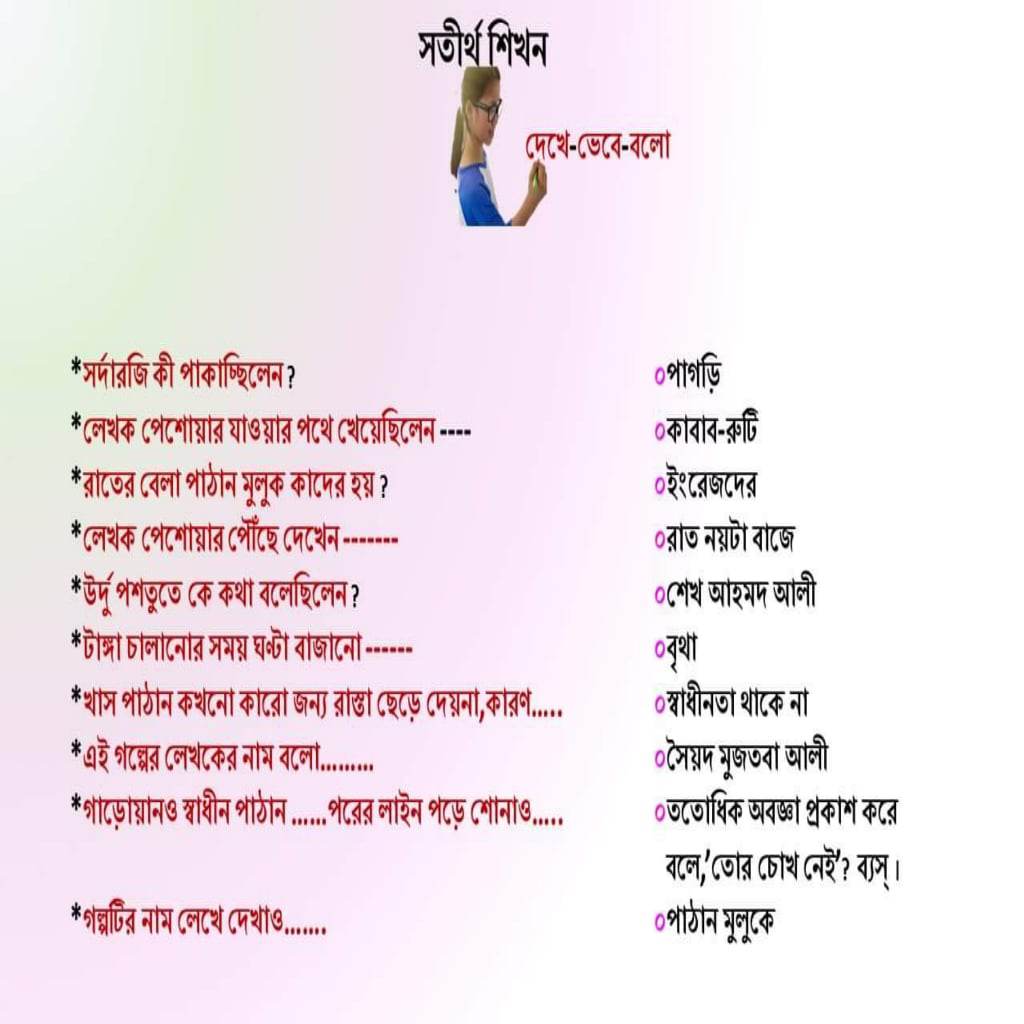 সতীর্থ শিখন
দেখে-ভেবে-বলো
*সর্দারজি কী পাকাচ্ছিলেন ? oপাগড়ি
*লেখক পেশোয়ার যাওয়ার পথে খেয়েছিলেন ---- oকাবাব-রুটি
*রাতের বেলা পাঠান মুলুক কাদের হয় ? oইংরেজদের
*লেখক পেশোয়ার পৌঁছে দেখেন ------- oরাত নয়টা বাজে
*উর্দু পশতুতে কে কথা বলেছিলেন ? oশেখ আহমদ আলী
*টাঙ্গা চালানোর সময় ঘণ্টা বাজানো ------ oবৃথা
*খাস পাঠান কখনো কারো জন্য রাস্তা ছেড়ে দেয়না,কারণ..... oস্বাধীনতা থাকে না
*এই গল্পের লেখকের নাম বলো......... oসৈয়দ মুজতবা আলী
*গাড়োয়ানও স্বাধীন পাঠান ......পরের লাইন পড়ে শোনাও..... oততোধিক অবজ্ঞা প্রকাশ করে
বলে,'তোর চোখ নেই'? ব্যস্।
*গল্পটির নাম লেখে দেখাও....... oপাঠান মুলুকে